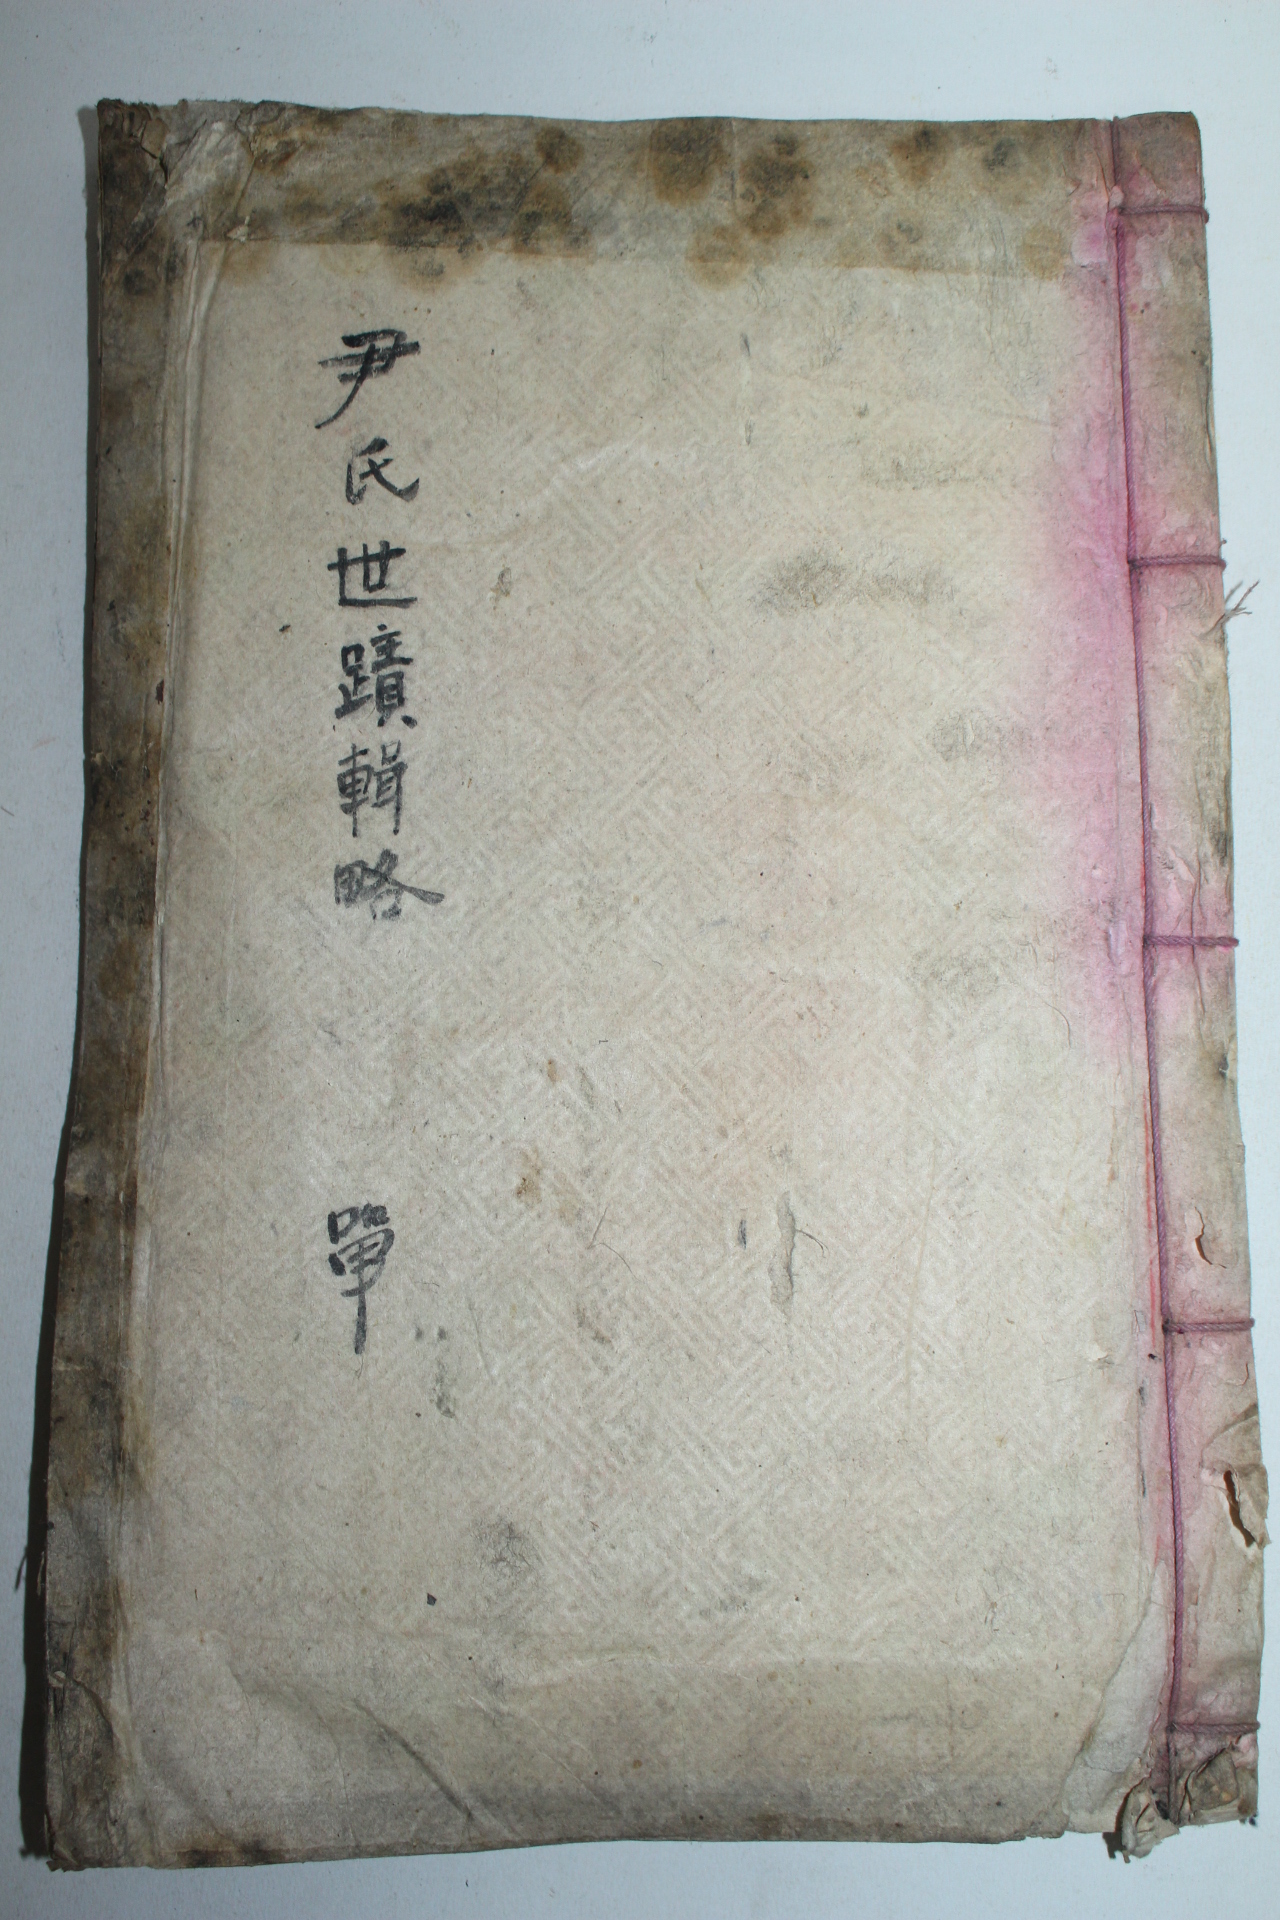 尹氏世蹟輯略
單